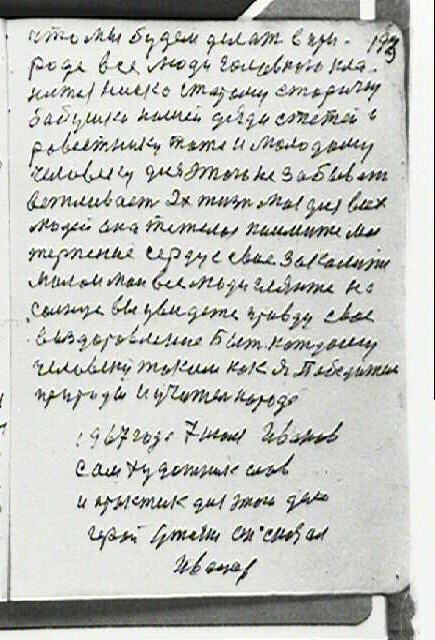 что мы будем делат в при-
193
роде все люди головного кла-
нится ниско старому старичку
бабушке нашей дяди с тетей и
ровестнику тоже и молодому
человеку дня этого не забыват
Их жизнь моя для всех
людей она тежолая поимите мое
терпение сердце свое закалите
милои мои все люди гляньте на
солнце вы увидете правду свое
выздоровление быт каждому
человеку таким как я Победител
природы и учител народа
1967 года 7 мая Иванов
сам художник слов
и практик для этого дела
герой
Иванов